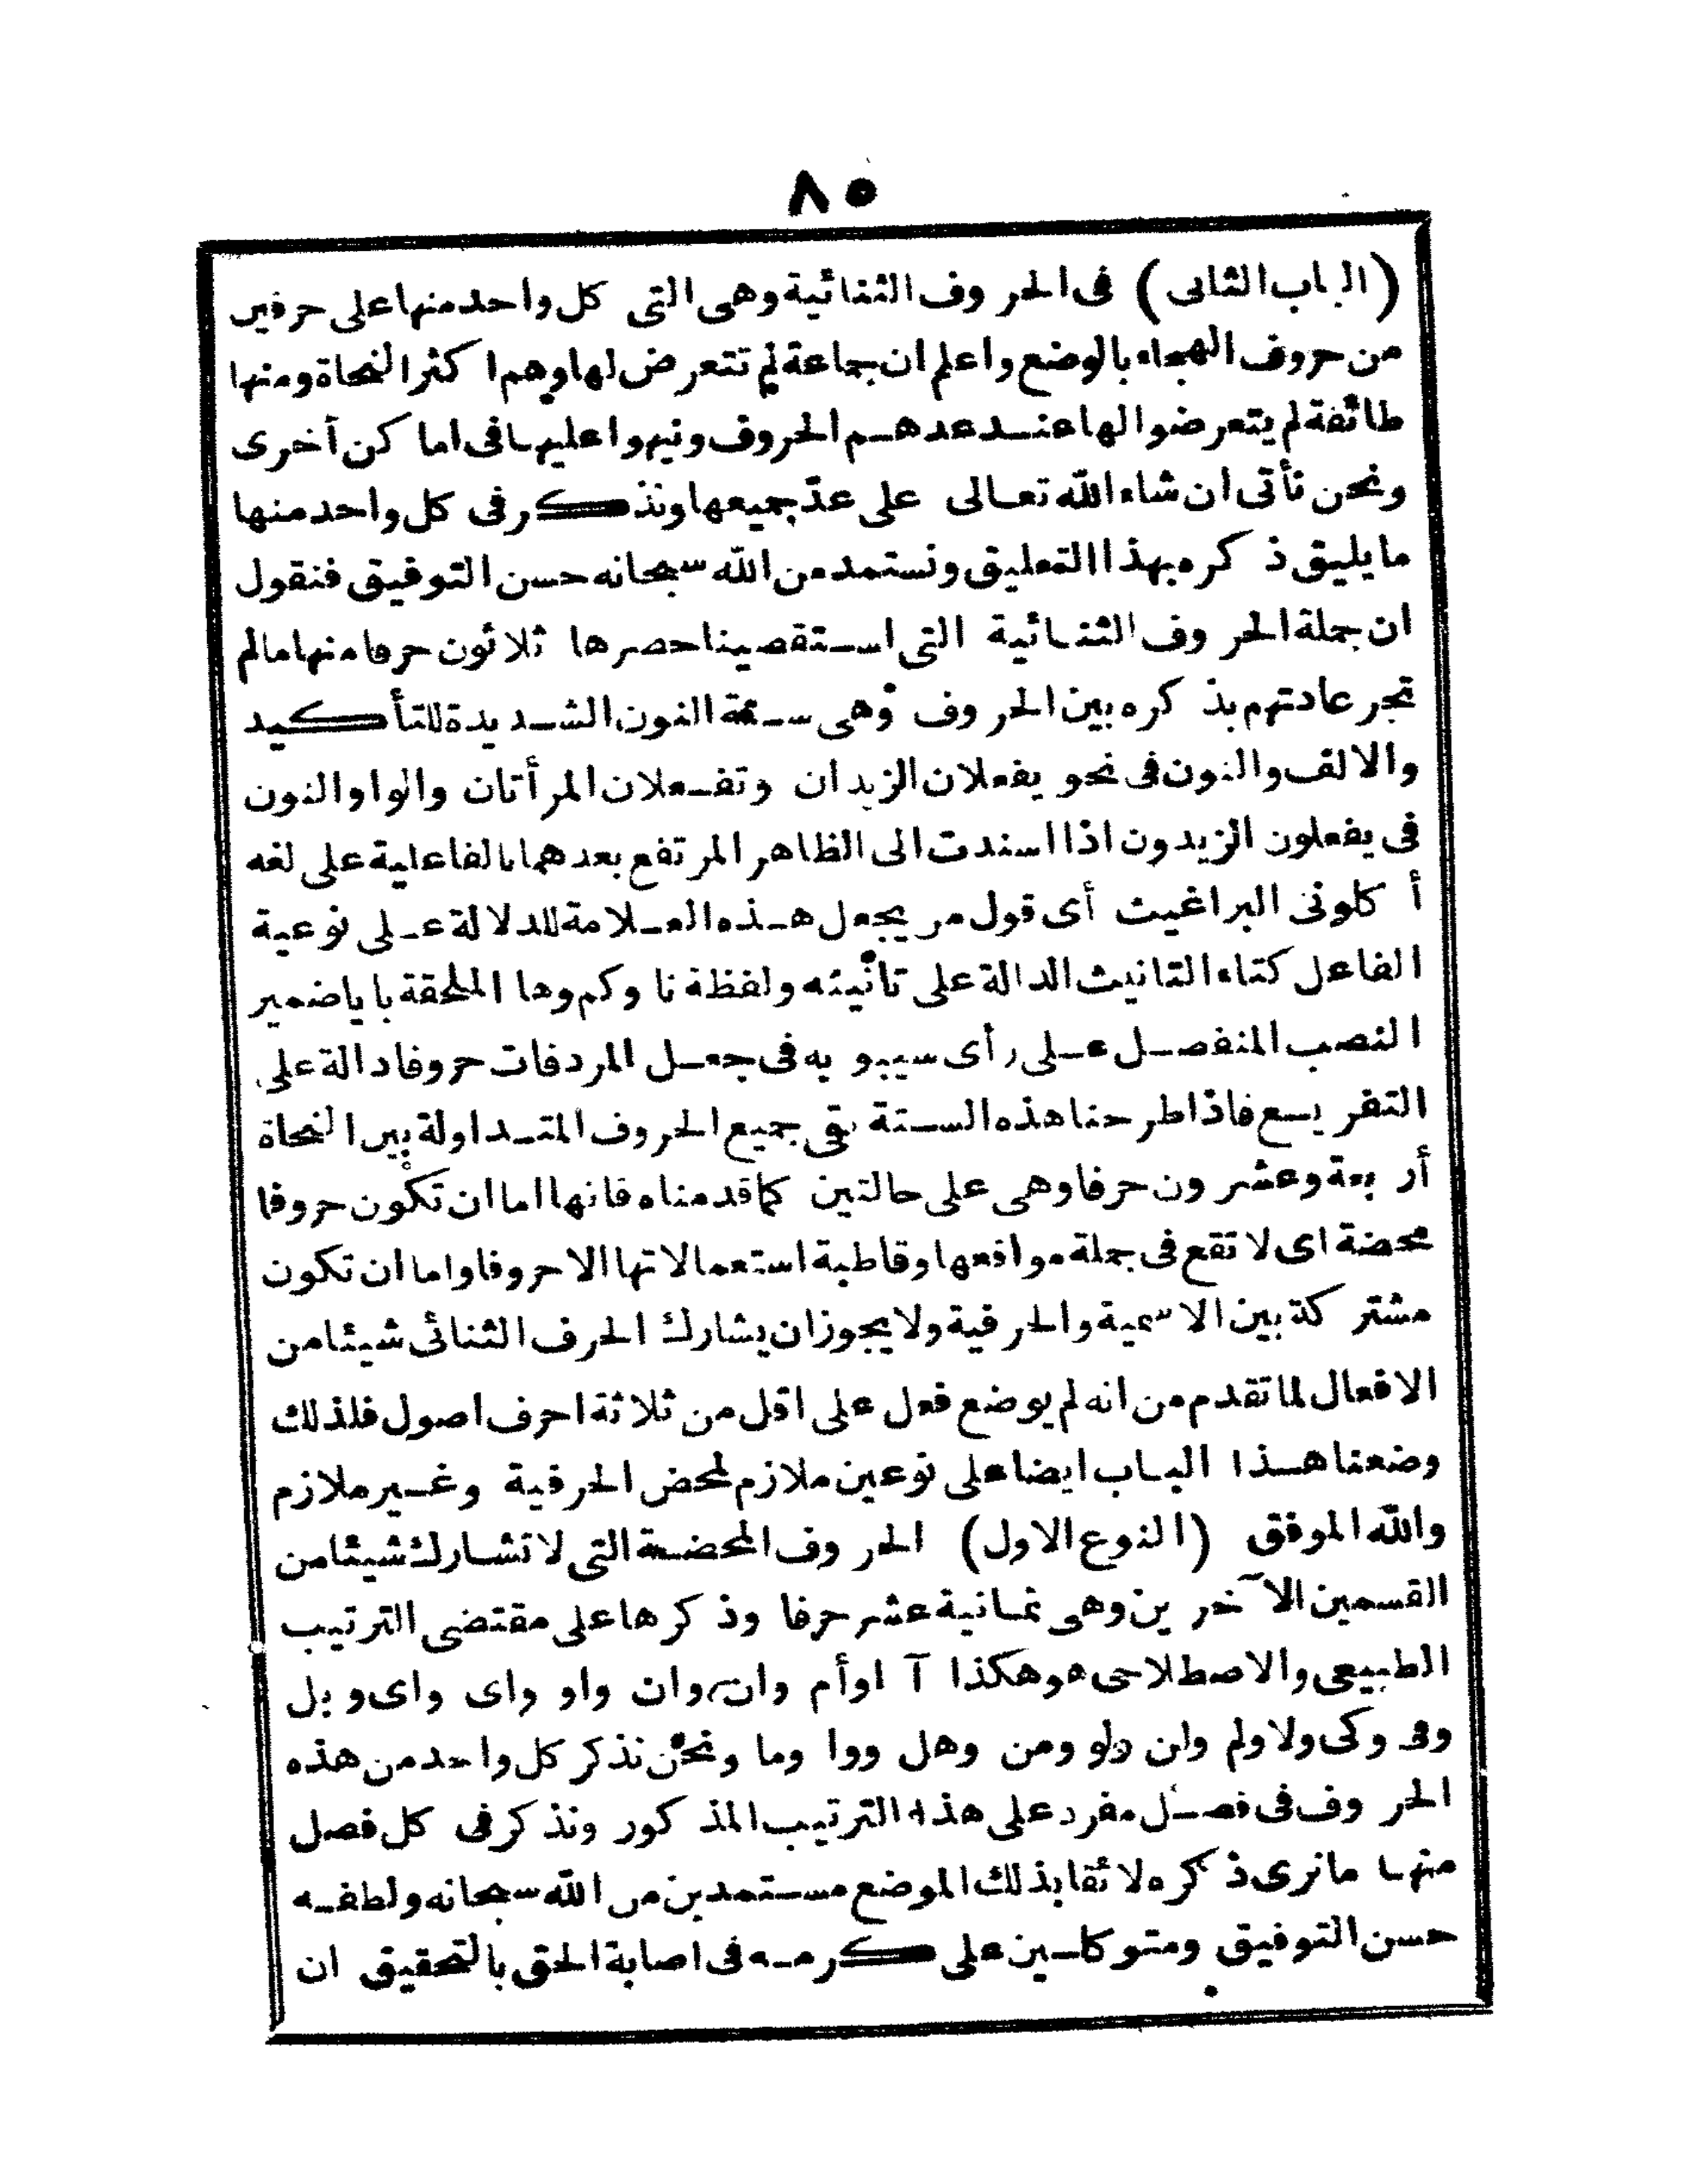 ٨٥
(الباب الثانى) فى الحروف الثنائية وهى التى كل واحد منها على حرفين
من حروف الهجاء بالوضع واعلم ان جماعة لم تتعرض لها وهم اكثر النحاة ومنها
طائفة لم يتعرضوا لها عند عدهم الحروف ونبهوا عليها فى اماكن أخرى
ونحن نأتى ان شاء الله تعالى على عدّ جميعها ونذكر فى كل واحد منها
ما يليق ذكره بهذا التعليق ونستمد من الله سبحانه حسن التوفيق فنقول
ان جملة الحروف الثنائية التى استقصينا حصرها ثلاثون حرفا منها مالم
تجر عادتهم بذكره بين الحروف وهى ستة النون الشديدة للتأكيد
والالف والنون فى نحو يفعلان الزيدان وتفعلان المرأتان والواو والنون
فى يفعلون الزيدون اذا اسندت الى الظاهر المرتفع بعدهما بالفاعلية على لغه
أكلونى البراغيث أى قول من يجعل هذه العلامة للدلالة على نوعية
الفاعل كتاء التانيث الدالة على تأنيثه ولفظة نا وكم وها الملحقة بايا ضمير
النصب المنفصل على رأى سيبويه فى جعل المردفات حروفا دالة على
التفريع فاذا طرحنا هذه الستة بقى جميع الحروف المتداولة بين النحاة
أربعة وعشرون حرفا وهى على حالتين كما قدمناه فانها اما ان تكون حروفا
محضة اى لا تقع فى جملة مواقعها وقاطبة استعمالاتها الا حروفا واما ان تكون
مشتركة بين الاسمية والحرفية ولا يجوز ان يشارك الحرف الثنائى شيئا من
الافعال لما تقدم من انه لم يوضع فعل على اقل من ثلاثة احرف اصول فلذلك
وضعنا هذا الباب ايضا على نوعين ملازم لمحض الحرفية وغير ملازم
والله الموفق (النوع الاول) الحروف المحضة التى لا تشارك شيئا من
القسمين الآخرين وهى ثمانية عشر حرفا وذكرها على مقتضى الترتيب
الطبيعى والاصطلاحى هو هكذا آ او أم وان وان واو واى واى وبل
وفى وكى ولا ولم ولن ولو ومن وهل ووا وما ونحن نذكر كل واحد من هذه
الحروف فى فصل مفرد على هذا الترتيب المذكور ونذكر فى كل فصل
منها ما نرى ذكره لائقا بذلك الموضع مستمدين من الله سبحانه ولطفه
حسن التوفيق ومتوكلين على كرمه فى اصابة الحق بالتحقيق ان